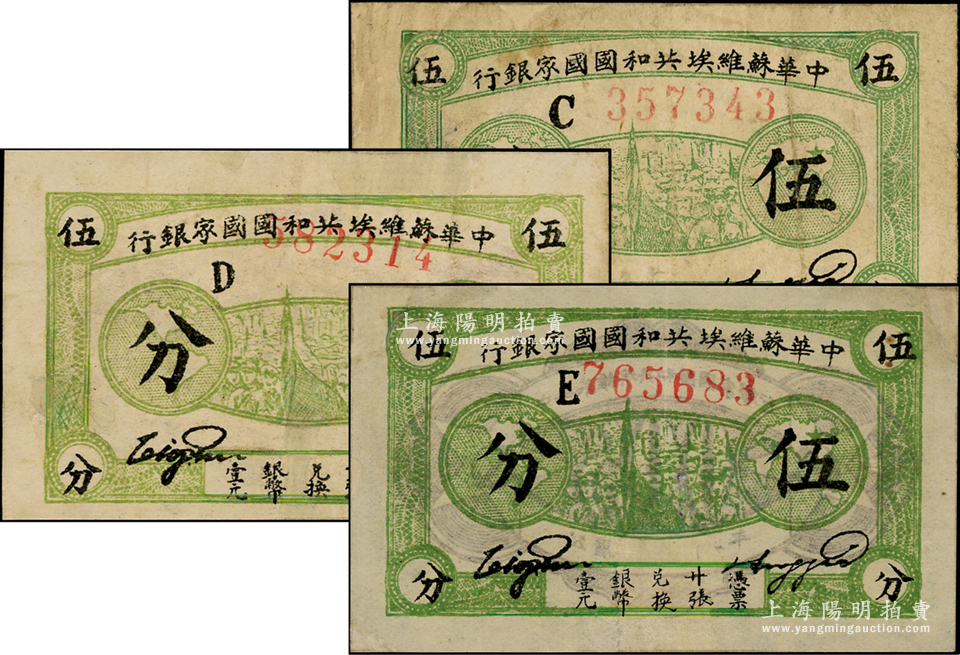 伍
伍
中華蘇維埃共和國國家銀行
C 357343
伍
伍
伍
中華蘇維埃共和國國家銀行
582314
D
分
分
兌換
銀幣
壹元
上海陽明拍賣
www.yangmingauction.com
伍
伍
中華蘇維埃共和國國家銀行
E765683
分
伍
分
分
憑票
廿張
兌換
銀幣
壹元
上海陽明拍賣
www.yangmingauction.com